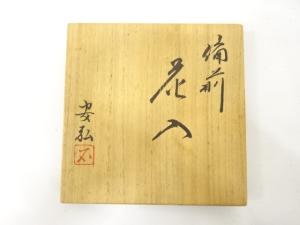 備前
花入
安弘